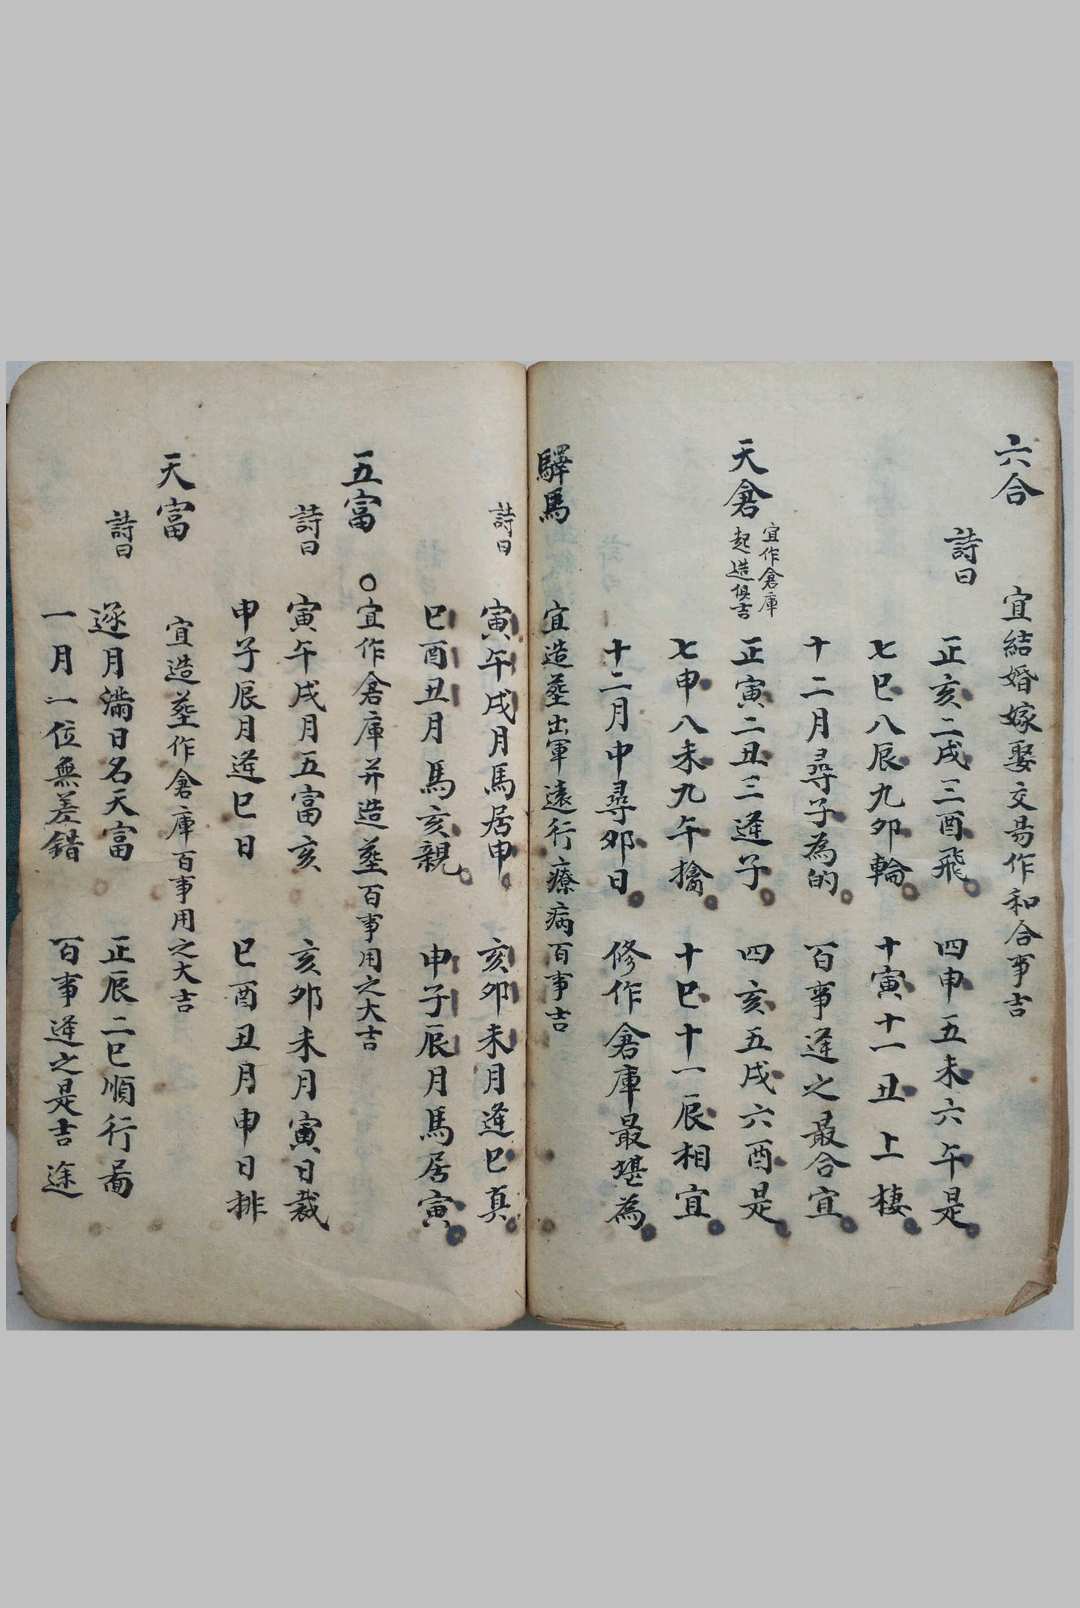 六合
宜結婚嫁娶交易作和合事吉
詩曰
正亥二戌三酉飛 四申五未六午是
七巳八辰九卯輪 十寅十一丑上棲
十二月尋子為的 百事逢之最合宜
天倉 宜作倉庫起造俱吉
正寅二丑三逢子 四亥五戌六酉是
七申八未九午擒 十巳十一辰相宜
十二月中尋卯日 修作倉庫最堪為
驛馬 宜造塟出軍遠行療病百事吉
詩曰
寅午戌月馬居申 亥卯未月逢巳真
巳酉丑月馬亥親 申子辰月馬居寅
五富 〇宜作倉庫并造塟百事用之大吉
詩曰
寅午戌月五富亥 亥卯未月寅日裁
申子辰月逢巳日 巳酉丑月申日排
天富 宜造塟作倉庫百事用之大吉
詩曰
逐月滿日名天富 正辰二巳順行啚
一月一位無差錯 百事逢之是吉途